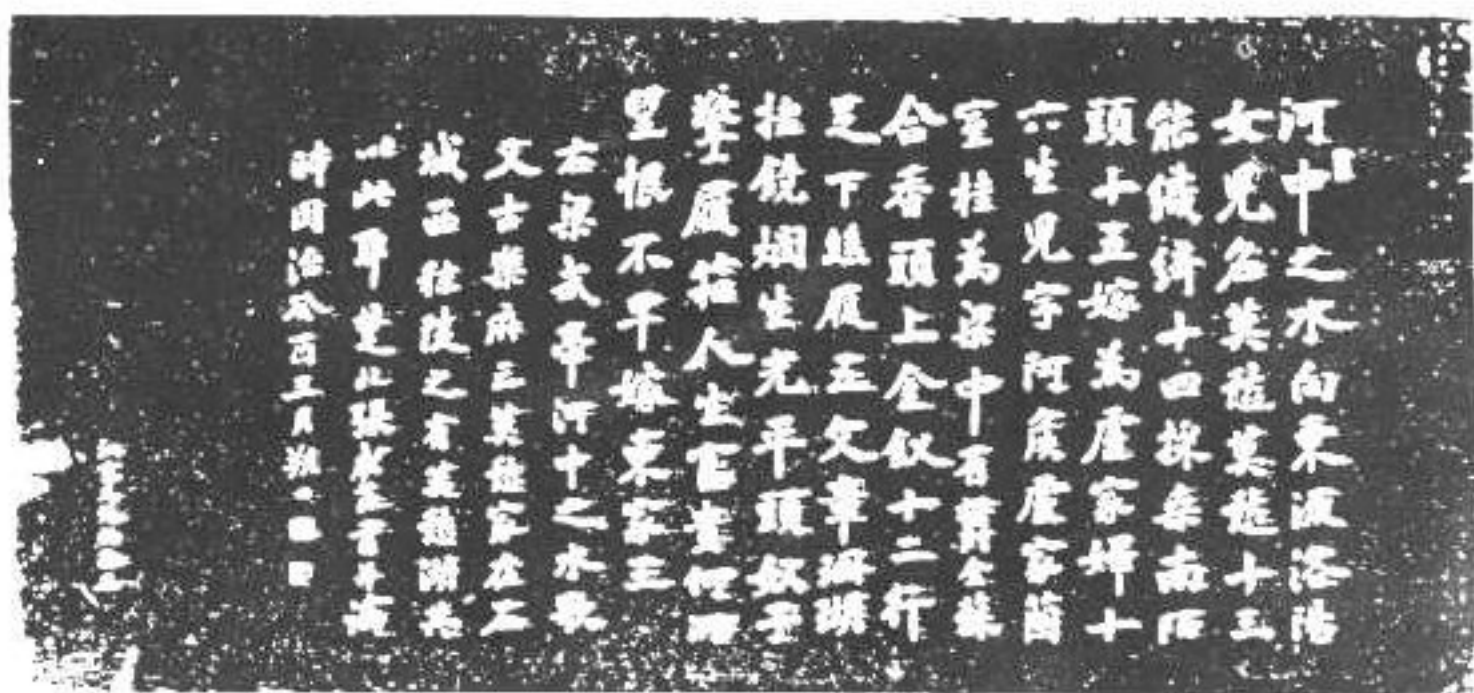 河中之水向東流洛陽
女兒名莫愁莫愁十三
能織綺十四採桑南陌
頭十五嫁為盧家婦十
六生兒字阿矦盧家蘭
室桂為梁中有鬱金蘇
合香頭上金釵十二行
足下絲履五文章珊瑚
挂鏡爛生光平頭奴子
擎履箱人生富貴何所
望恨不早嫁東家王
右梁武帝河中之水歌
文古樂府云莫愁家在石
城西之有莫愁湖
以此耶楚北張
時同治